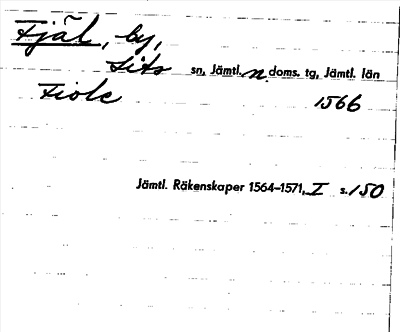 Fjäl, by,
Lits sn, Jämtl. n. doms. tg, Jämtl. län
Fiole 1566
Jämtl. Räkenskaper 1564–1571, I s. 150